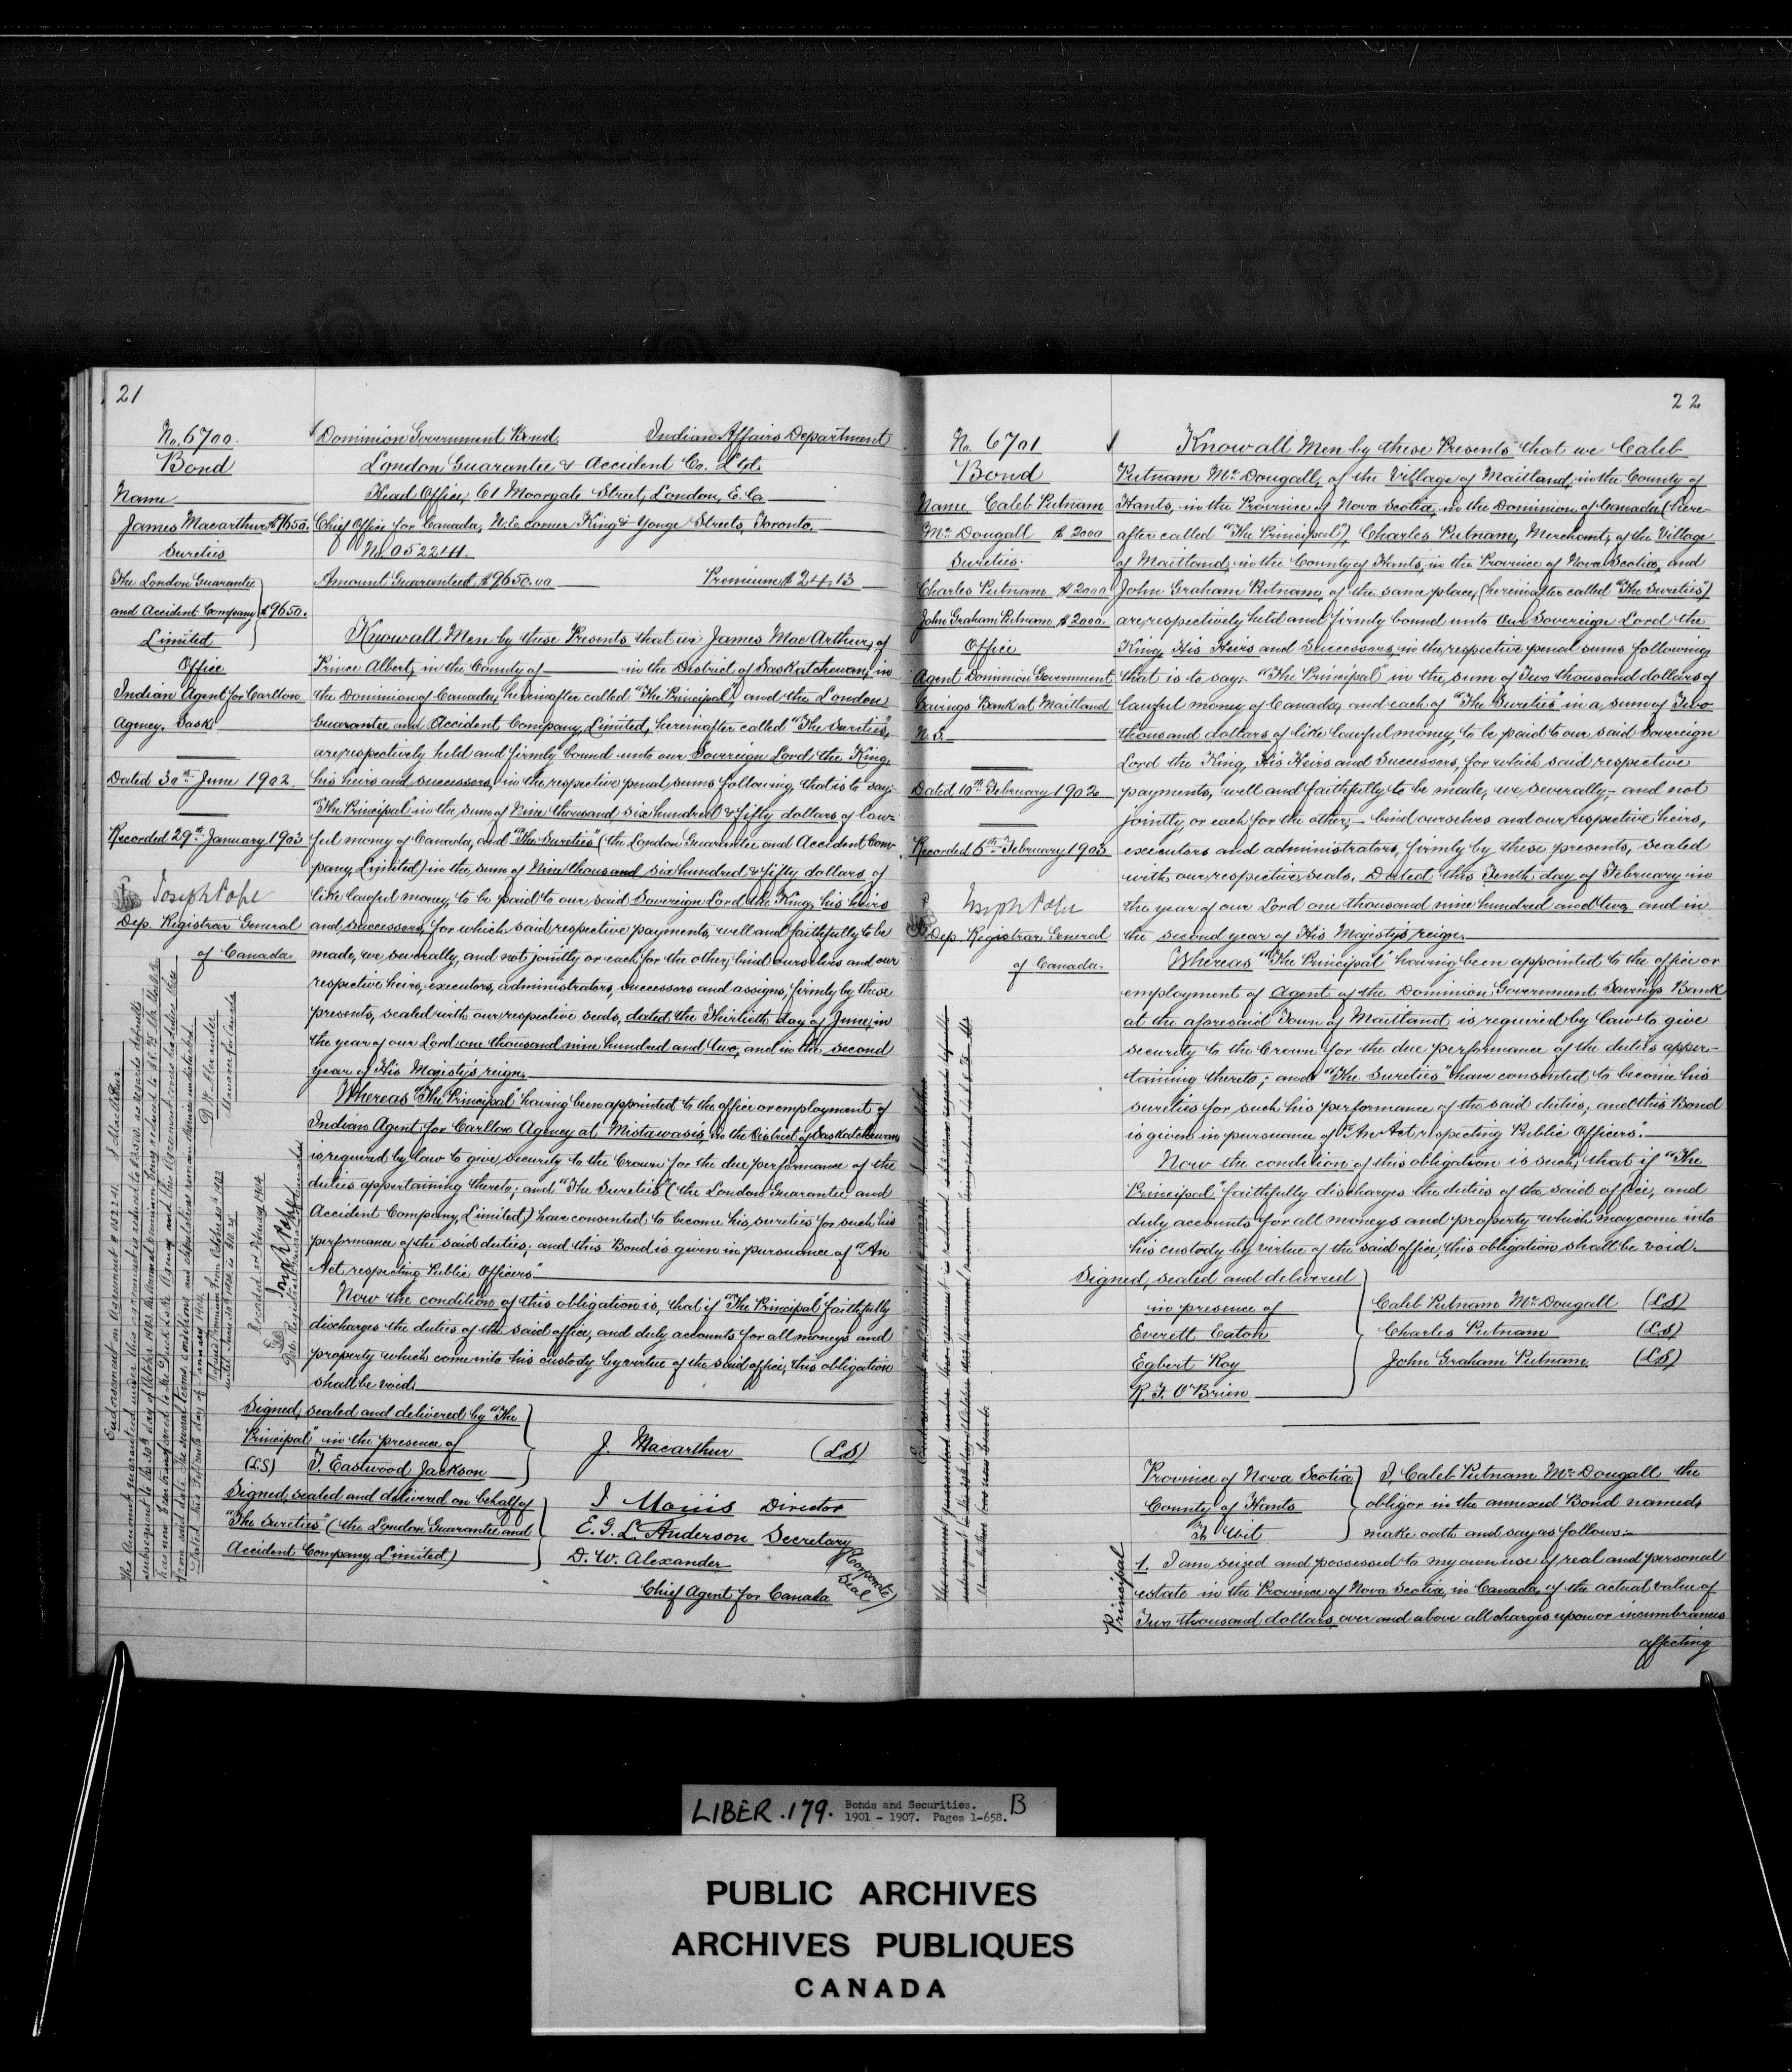 21
No. 6700.
Bond
Name
James Macarthur $9650.
Sureties
The London Guarantee
and Accident Company $9650.
Limited
Office
Indian Agent for Carlton
Agency. Sask
Dated 30th June 1902.
Recorded 29th January 1903
Joseph Pope
Dep. Registrar General
of Canada.
Dominion Government Bond. Indian Affairs Department
London Guarantee & Accident Co. Ltd.
Head Office, 61 Moorgate Street, London, E.C.
Chief Office for Canada, N.E. corner King & Yonge Streets, Toronto.
Amount Guaranteed $9650.00 Premium $24.13
Know all Men by these Presents that we James MacArthur, of
Prince Albert, in the County of in the District of Saskatchewan, in
the Dominion of Canada, hereinafter called "The Principal", and the London
Guarantee and Accident Company, Limited, hereinafter called "The Sureties",
are respectively held and firmly bound unto our Sovereign Lord the King,
his heirs and successors, in the respective penal sums following, that is to say:
"The Principal" in the sum of Nine thousand six hundred & fifty dollars of law-
ful money of Canada, and "The Sureties" (the London Guarantee and Accident Com-
pany Limited) in the sum of Nine thousand six hundred & fifty dollars of
like lawful money, to be paid to our said Sovereign Lord the King, his heirs
and successors, for which said respective payments, well and faithfully to be
made, we severally, and not jointly or each for the other, bind ourselves and our
respective heirs, executors, administrators, successors and assigns, firmly by these
presents, sealed with our respective seals, dated the Thirtieth day of June, in
the year of our Lord one thousand nine hundred and two, and in the second
year of His Majesty's reign.
Whereas "The Principal" having been appointed to the office or employment of
Indian Agent for Carlton Agency at Mistawasis, in the District of Saskatchewan
is required by law to give security to the Crown for the due performance of the
duties appertaining thereto; and "The Sureties" (the London Guarantee and
Accident Company, Limited) have consented to become his sureties for such his
performance of the said duties; and this Bond is given in pursuance of "An
Act respecting Public Officers"
Now the condition of this obligation is, that if "The Principal" faithfully
discharges the duties of the said office, and duly accounts for all moneys and
property which come into his custody by virtue of the said office, this obligation
shall be void.
Signed, sealed and delivered by "The
Principal" in the presence of
(LS) T. Eastwood Jackson
J. Macarthur (LS)
Signed, sealed and delivered on behalf of
"The Sureties" (the London Guarantee and
Accident Company, Limited)
Director
E. G. L. Anderson Secretary
D. W. Alexander
Chief Agent for Canada
Corporate
Seal
Endorsement on Agreement
D. W. Alexander
Manager for Canada
Recorded 3rd February 1904
Joseph Pope
22
No. 6701
Bond
Name Caleb Putnam
Mc Dougall $2000
Sureties.
Charles Putnam $2000
John Graham Putnam $2000.
Office
Agent Dominion Government
Savings Bank at Maitland
N.S.
Dated 10th February 1902
Recorded 5th February 1903
Joseph Pope
Dep. Registrar General
of Canada.
Know all Men by these Presents that we Caleb
Putnam Mc Dougall, of the Village of Maitland, in the County of
Hants, in the Province of Nova Scotia, in the Dominion of Canada (here-
after called "The Principal"), Charles Putnam, Merchant, of the Village
of Maitland, in the County of Hants, in the Province of Nova Scotia, and
John Graham Putnam, of the same place, (hereinafter called "The Sureties")
are respectively held and firmly bound unto Our Sovereign Lord the
King, His Heirs and Successors, in the respective penal sums following,
that is to say:- "The Principal" in the sum of Two thousand dollars of
lawful money of Canada, and each of "The Sureties" in a sum of Two
thousand dollars of like lawful money, to be paid to our said Sovereign
Lord the King, His Heirs and Successors, for which said respective
payments, well and faithfully to be made, we severally,- and not
jointly, or each for the other,- bind ourselves and our respective heirs,
executors and administrators, firmly by these presents, sealed
with our respective seals. Dated this Tenth day of February in
the year of our Lord one thousand nine hundred and two and in
the second year of His Majesty's reign.
Whereas "The Principal" having been appointed to the office or
employment of Agent of the Dominion Government Savings Bank
at the aforesaid Town of Maitland is required by law to give
security to the Crown for the due performance of the duties apper-
taining thereto; and "The Sureties" have consented to become his
sureties for such his performance of the said duties; and this Bond
is given in pursuance of "An Act respecting Public Officers".
Now the condition of this obligation is such, that if "The
Principal" faithfully discharges the duties of the said office, and
duly accounts for all moneys and property which may come into
his custody by virtue of the said office, this obligation shall be void.
Signed, sealed and delivered
in presence of
Everett Eaton
Egbert Roy
R. F. O'Brien
Caleb Putnam Mc Dougall (LS)
Charles Putnam (LS)
John Graham Putnam (LS)
Province of Nova Scotia
County of Hants
To Wit
I, Caleb Putnam Mc Dougall the
obligor in the annexed Bond named,
make oath and say as follows:-
Principal
1. I am seized and possessed to my own use of real and personal
estate in the Province of Nova Scotia, in Canada, of the actual value of
Two thousand dollars, over and above all charges upon or incumbrances
affecting
LIBER. 179. Bonds and Securities. B
1901 - 1907. Pages 1-658.
PUBLIC ARCHIVES
ARCHIVES PUBLIQUES
CANADA